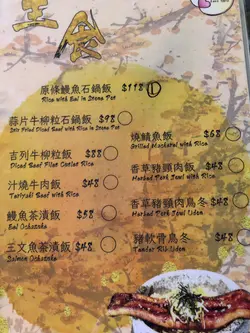 主食
原條鰻魚石鍋飯 $118 ①
Rice with Eel in Stone Pot
蒜片牛柳粒石鍋飯 $98
Stir Fried Diced Beef with Rice in Stone Pot
吉列牛柳粒飯 $88
Diced Beef Fillet Cutlet Rice
汁燒牛肉飯 $48
Teriyaki Beef with Rice
鰻魚茶漬飯 $58
Eel Ochazuke
三文魚茶漬飯 $48
Salmon Ochazuke
燒鯖魚飯 $68
Grilled Mackerel with Rice
香草豬頸肉飯 $48
Herbed Pork Jowl with Rice
香草豬頸肉烏冬 $48
Herbed Pork Jowl Udon
豬軟骨烏冬 $48
Tender Rib Udon